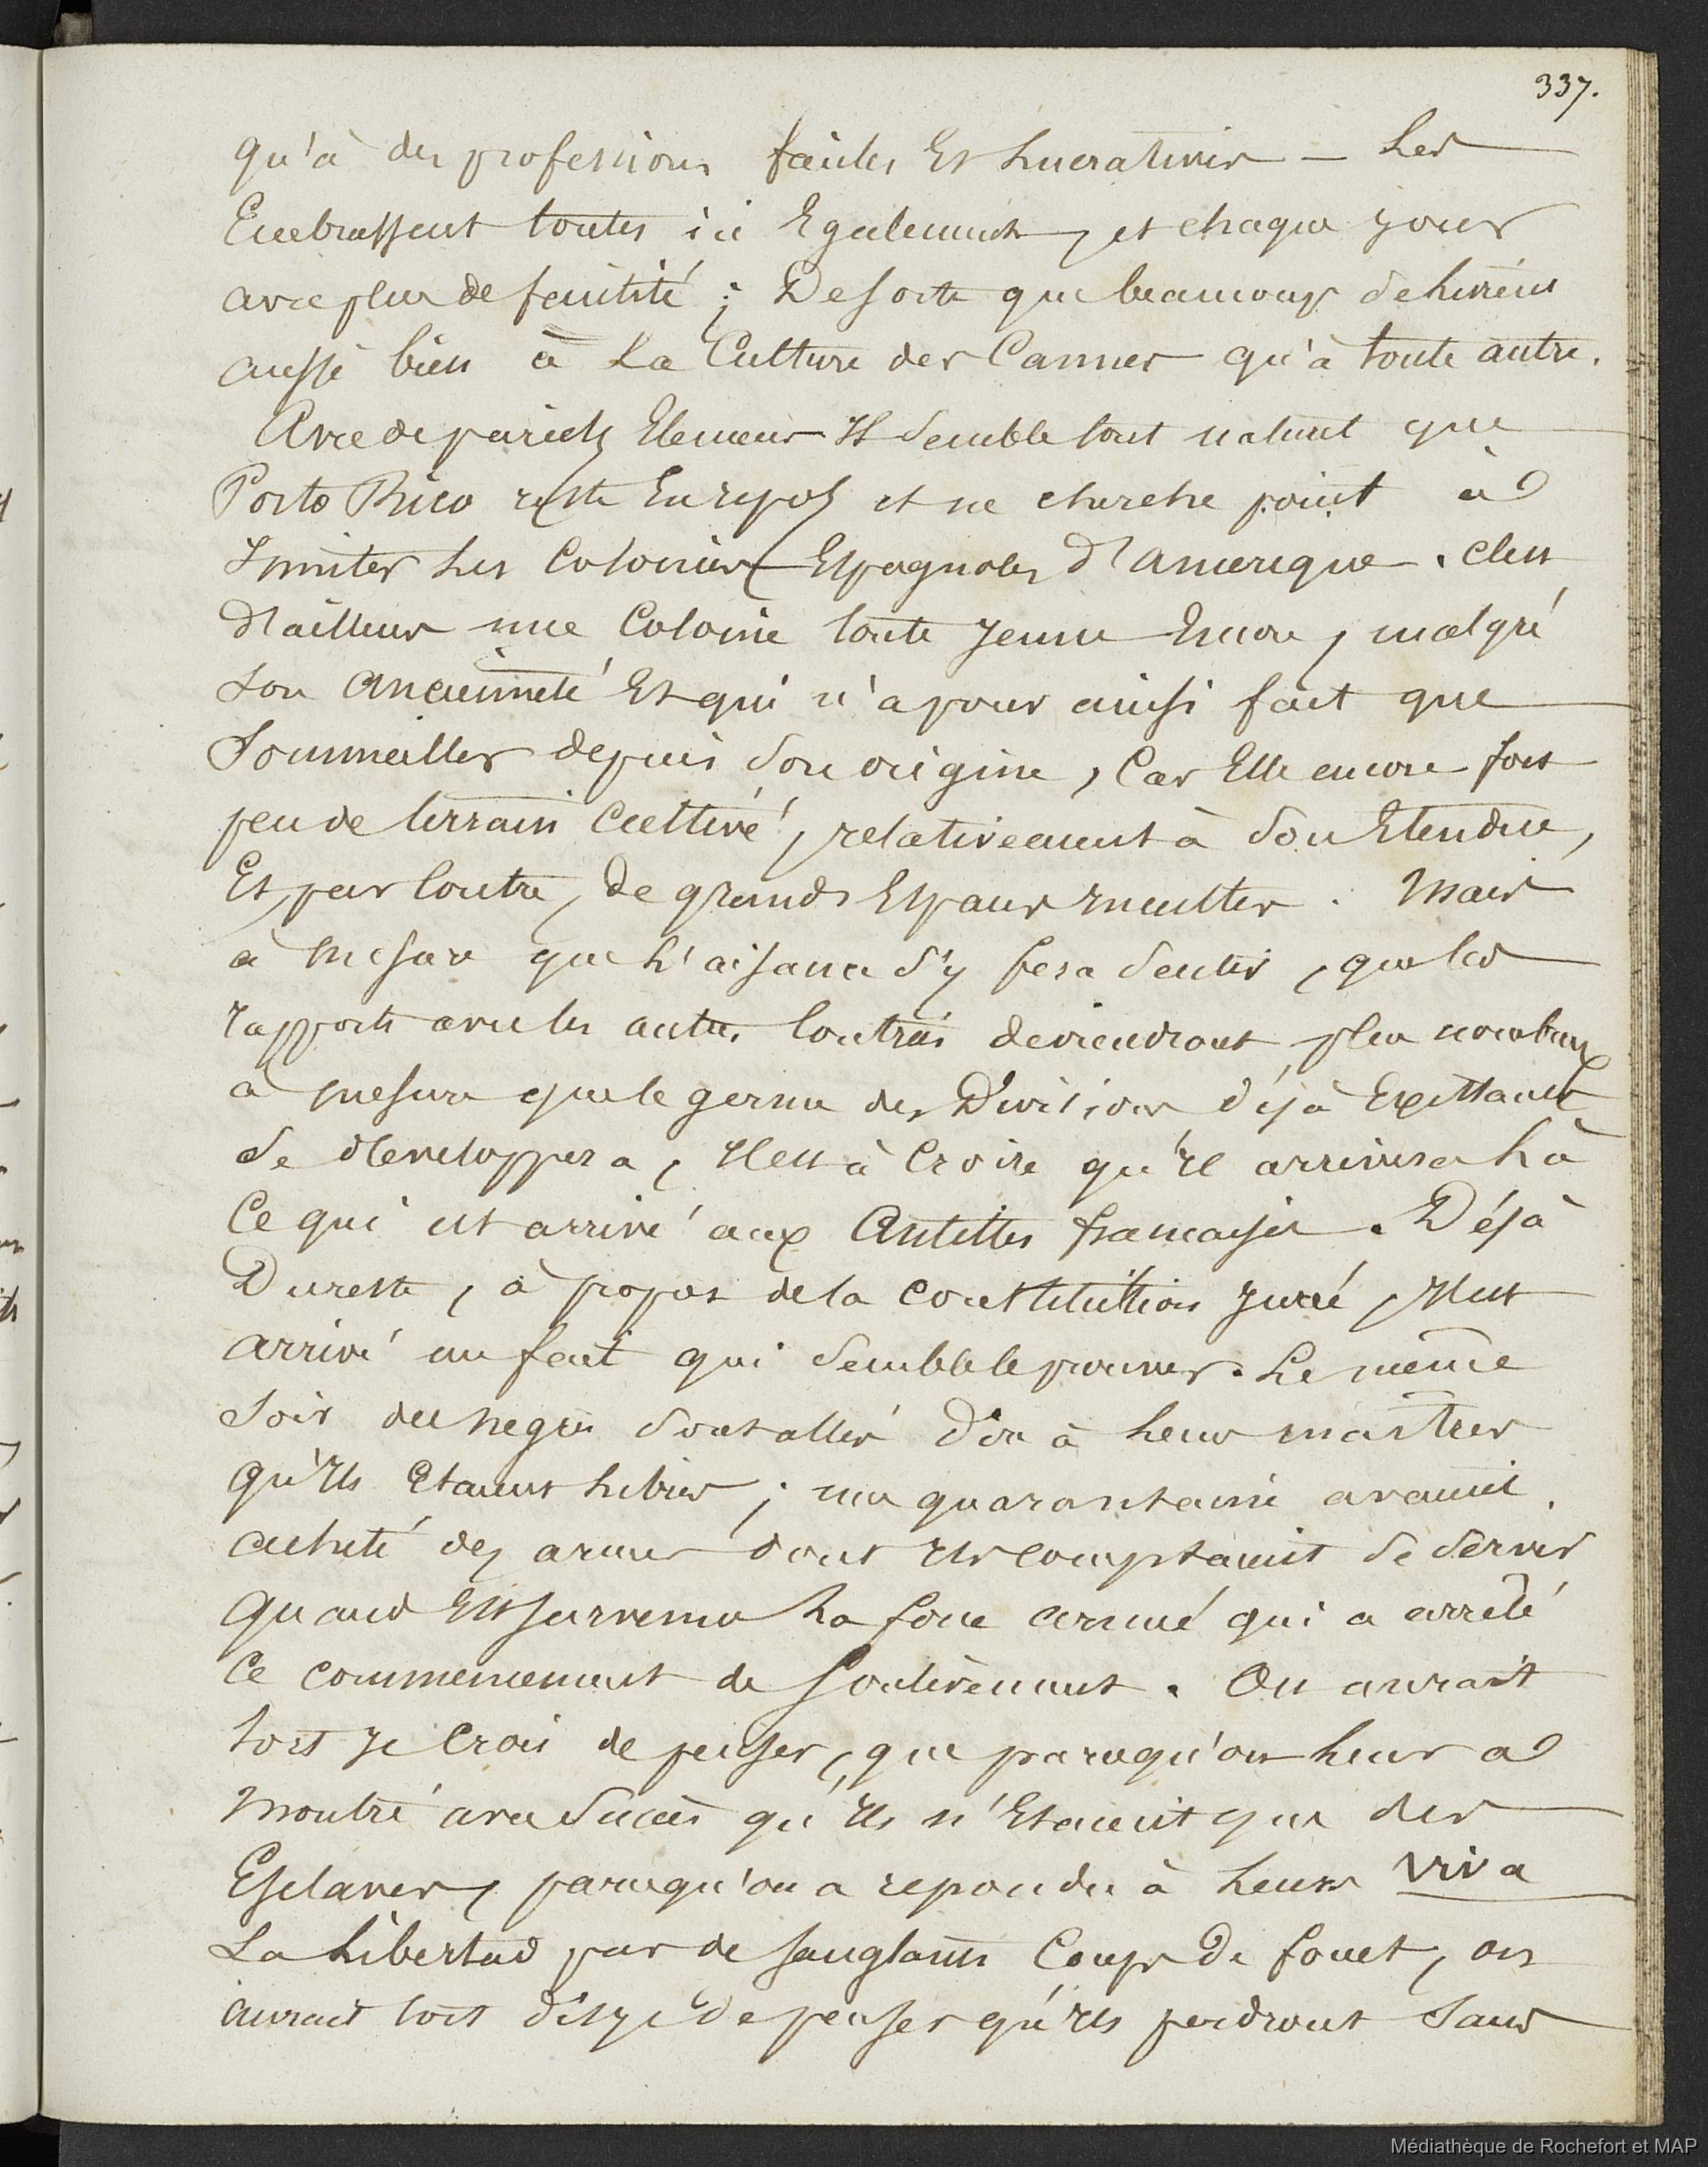 337.
qu'à des professions faciles Et Lucratives — Les
Embrassent toutes ici Egalement, et chaque jour
avec plus de facilité ; De sorte que beaucoup se livrent
aussi bien à La Culture des Cannes qu'à toute autre.
Avec de pareils Elemens Il semble tout naturel que
Porto Rico reste En repos et ne cherche point à
Imiter Les Colonies Espagnoles d'amerique. C'est
d'ailleurs une Colonie toute jeune Encore, malgré
son ancienneté Et qui n'a pour ainsi fait que
Sommeiller depuis son origine, Car Elle encore fort
peu de terrain Cultivé, relativement à son Etendue,
Et, par Contre, de grands Espaces Incultes. Mais
à Mesure que L'aisance s'y fera sentir, que les
rapports avec les autres Contrées deviendront plus nombreux
à mesure que le germe des Divisions déjà Existant
se developpera, Il est à Croire qu'Il arrivera Là
Ce qui est arrivé aux Antilles françaises. Déjà
Du reste, à propos de la Constitution jurée, Il est
arrivé un fait qui semble le prouver. Le même
soir des negres sont allés dire à Leurs maîtres
qu'Ils Etaient Libres ; une quarantaine avaient
acheté des armes dont Ils comptaient se servir
quand Est survenu La force armée qui a arrêté
Ce commencement de Soulèvement. On aurait
tort je Crois de penser, que parcequ'on Leur a
Montré avec succès qu'Ils n'Etaient que des
Esclaves, parcequ'on a repondu à Leurs viva
La Libertad par de sanglants Coups De fouet, on
aurait tort dis je De penser qu'Ils perdront sans
Médiathèque de Rochefort et MAP